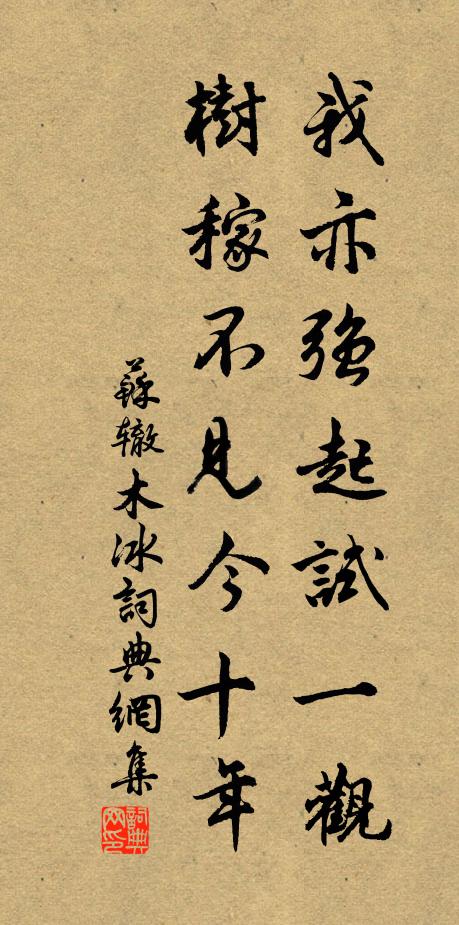 我亦強起試一觀
樹稼不見今十年
蘇辙木冰詞典網集
詞典网印